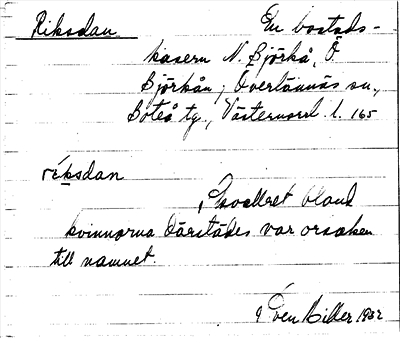 Riksdan. En bostads-
kasern N. Björkå, Ö.
Björkån, Överlännäs sn.,
Boteå tg., Västernorrl. l. 165
ríksdan
Skvallret bland
kvinnorna därstädes var orsaken
till namnet.
Sven Miller 1932